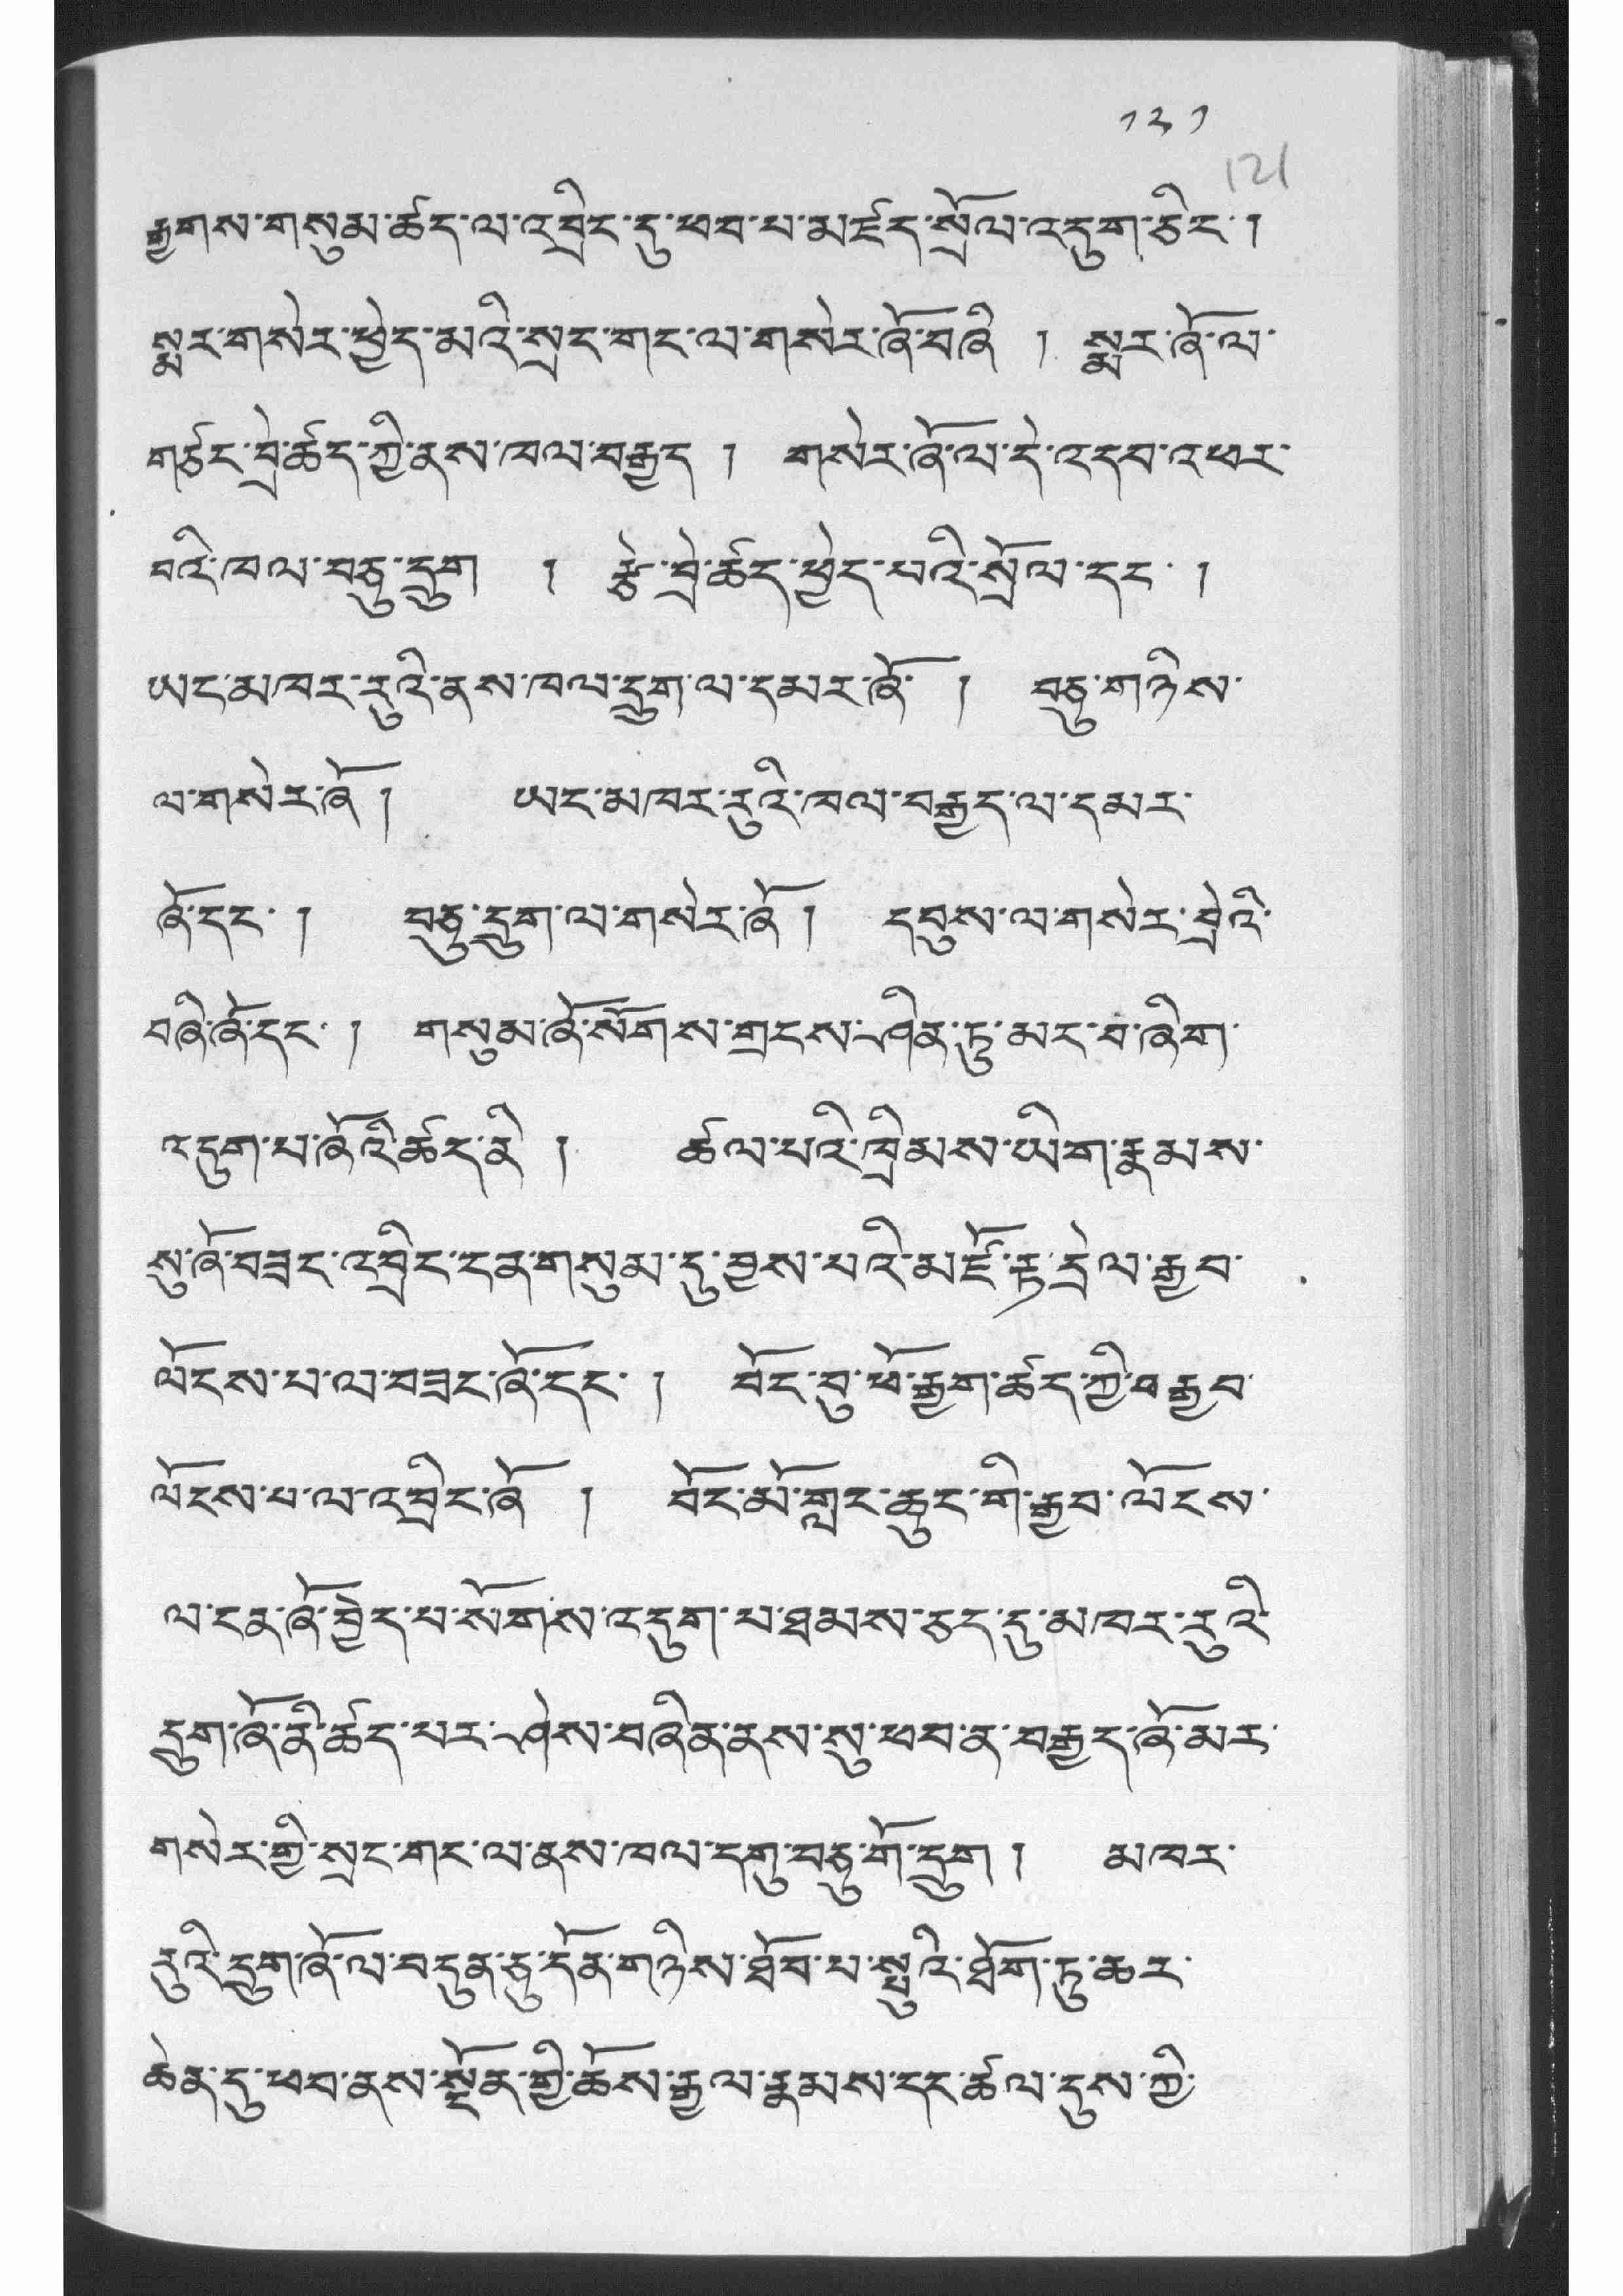 ༡༢༡
121
རྒྱགས་གསུམ་ཚད་ལ་འབྲིང་དུ་ཕབ་པ་མཛད་སྲོལ་འདུག་ཅིང་།
སྨར་གསེར་ཕྱེད་མའི་སྲང་གང་ལ་གསེར་ཞོ་བཞི །  སྨར་ཞོ་ལ་
གཙང་བྲེ་ཚད་ཀྱི་ནས་ཁལ་བརྒྱད །  གསེར་ཞོ་ལ་དེ་འདབ་འཕར་
བའི་ཁལ་བཅུ་དྲུག །  རྩེ་བྲེ་ཚད་ཕྱེད་པའི་སྲོལ་དང་།
ཡང་མཁར་རུའི་ནས་ཁལ་དྲུག་ལ་དམར་ཞོ །  བཅུ་གཉིས་
ལ་གསེར་ཞོ །  ཡང་མཁར་རུའི་ཁལ་བརྒྱད་ལ་དམར་
ཞོ་དང་།  བཅུ་དྲུག་ལ་གསེར་ཞོ །  དབུས་ལ་གསེར་བྲེའི་
བཞི་ཞོ་དང་།  གསུམ་ཞོ་སོགས་གྲངས་ཤིན་ཏུ་མང་བ་ཞིག་
འདུག་པ་ཞོའི་ཚད་ནི །  ཚལ་པའི་ཁྲིམས་ཡིག་རྣམས་
སུ་ཞོ་བཟང་འབྲིང་ངན་གསུམ་དུ་བྱས་པའི་མཛོ་རྟ་དྲེལ་རྒྱབ་
ལོངས་པ་ལ་བཟང་ཞོ་དང་།  བོང་བུ་ཕོ་རྒྱག་ཚད་ཀྱི་རྒྱབ་
ལོངས་པ་ལ་འབྲིང་ཞོ །  བོང་མོ་གླང་ཆུང་གི་རྒྱབ་ལོངས་
ལ་ངན་ཞོ་བྱེད་པ་སོགས་འདུག་པ་ཐམས་ཅད་དུ་མཁར་རུའི་
དྲུག་ཞོ་ནི་ཚད་པར་ཤེས་བཞིན་ནས་སུ་ཕབ་ན་བརྒྱད་ཞོ་མར་
གསེར་གྱི་སྲང་གང་ལ་ནས་ཁལ་དགུ་བཅུ་གོ་དྲུག །  མཁར་
རུའི་དྲུག་ཞོ་ལ་བདུན་ཅུ་དོན་གཉིས་ཐོབ་པ་སྤུའི་ཐོག་ཏུ་ཆར་
ཆེན་དུ་ཕབ་ནས་སྔོན་གྱི་ཆོས་རྒྱལ་རྣམས་དང་ཚལ་དུས་ཀྱི་